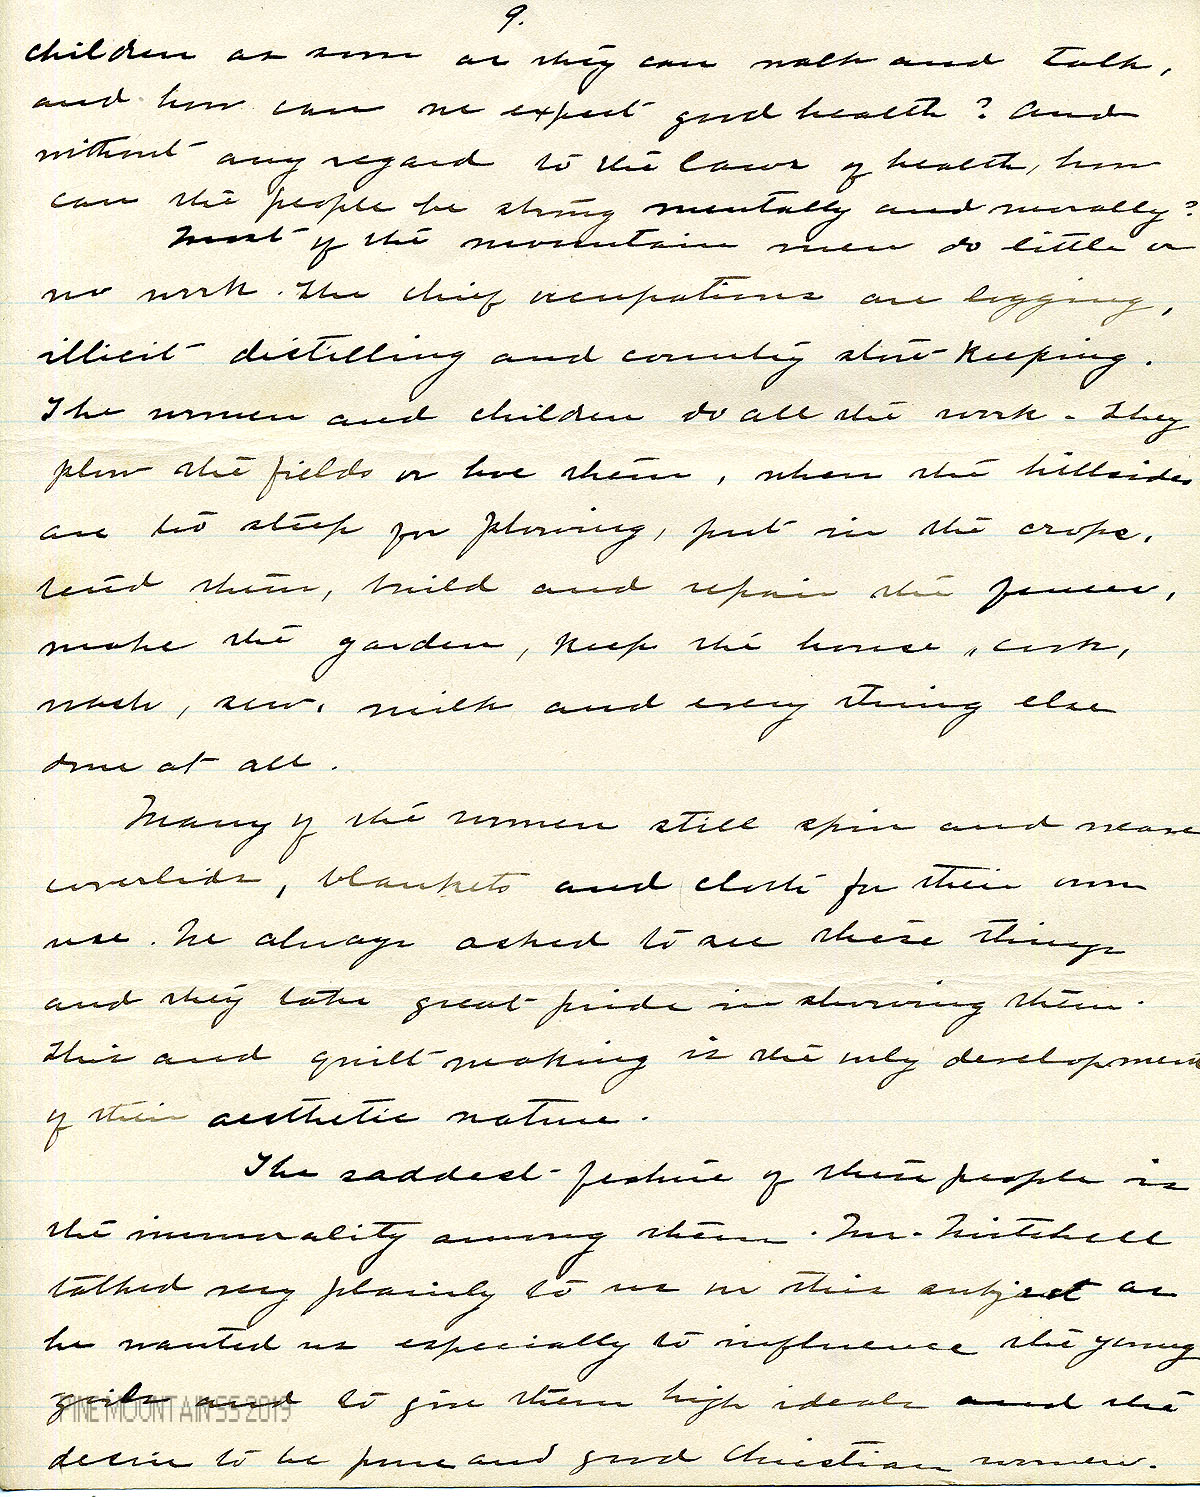 9.
children as soon as they can walk and talk,
and how can we expect good health? And
without any regard to the laws of health, how
can the people be strong mentally and morally?
Most of the mountain men do little or
no work. The chief occupations are logging,
illicit distilling and country store-keeping.
The women and children do all the work - they
plow the fields or hoe them, when the hillsides
are too steep for plowing, put in the crops,
tend them, build and repair the fences,
make the garden, keep the house, cook,
wash, sew, milk and every thing else
done at all.
Many of the women still spin and weave
coverlids, blankets and cloth for their own
use. We always asked to see these things
and they take great pride in showing them.
This and quilt making is the only development
of their aesthetic nature.
The saddest feature of these people is
the immorality among them. Mr. Mitchell
talked very plainly to us on this subject as
he wanted us especially to influence the young
girls and to give them high ideals and the
desire to be pure and good Christian women.
PINE MOUNTAIN SS 2019